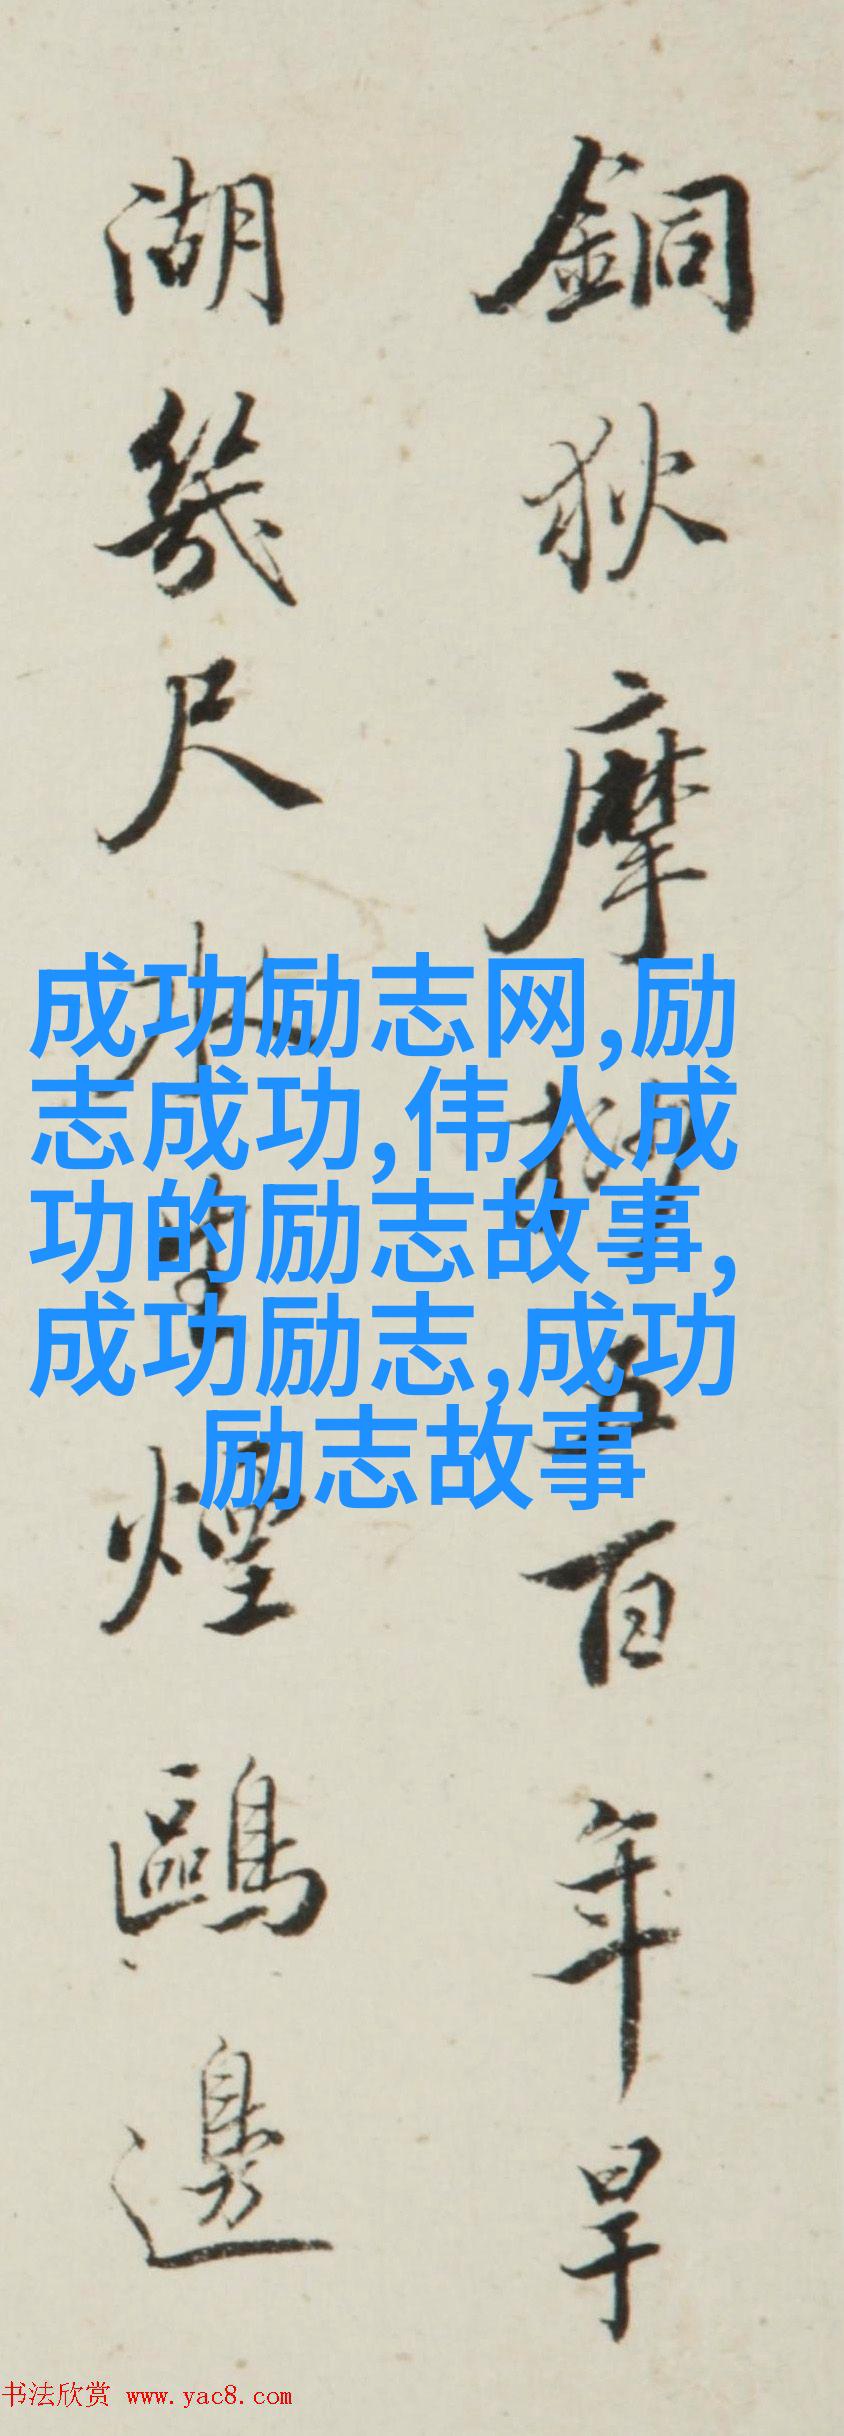 銅狄摩挲五百年旱
湖幾尺水生煙鷗邊
成功励志网,励
志成功,伟人成
功的励志故事,
成功励志,成功
励志故事
书法欣赏 www.yac8.com